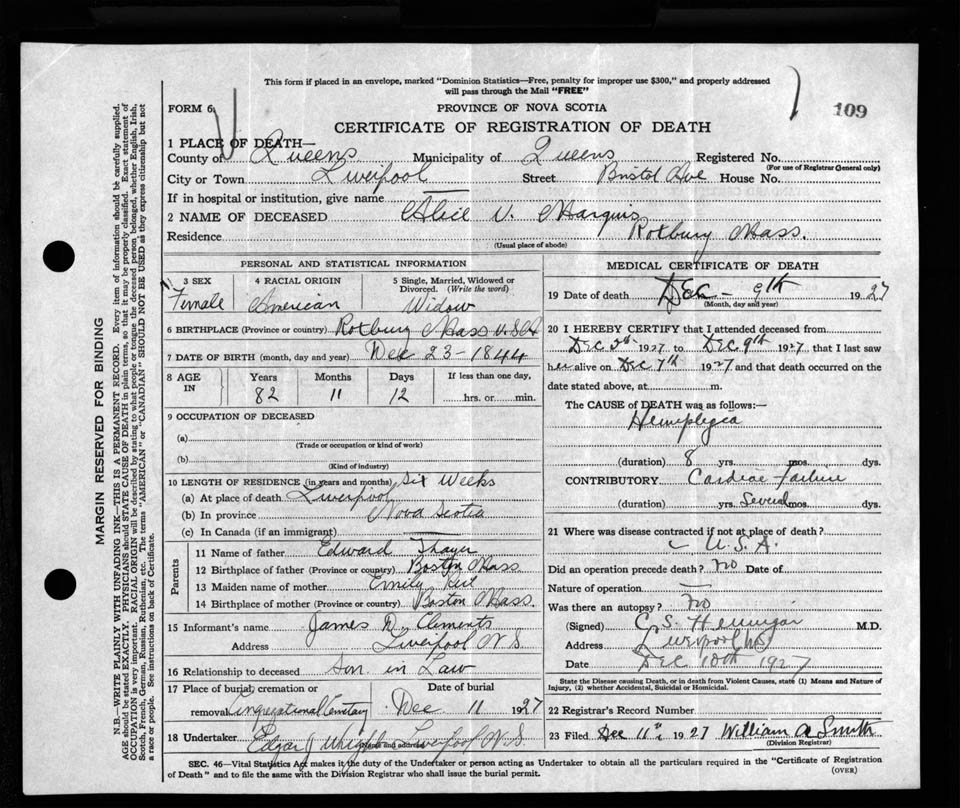 This form if placed in an envelope, marked "Dominion Statistics—Free, penalty for improper use $300," and properly addressed
will pass through the Mail "FREE"
109
FORM 6
PROVINCE OF NOVA SCOTIA
CERTIFICATE OF REGISTRATION OF DEATH
1 PLACE OF DEATH—
County of Queens Municipality of Queens Registered No.
(For use of Registrar General only)
City or Town Liverpool Street Bristol Ave House No.
If in hospital or institution, give name
2 NAME OF DECEASED Alice V. Marquis
Residence Roxbury Mass.
(Usual place of abode)
PERSONAL AND STATISTICAL INFORMATION
3 SEX 4 RACIAL ORIGIN 5 Single, Married, Widowed or
Divorced. (Write the word)
Female American Widow
6 BIRTHPLACE (Province or country) Roxbury Mass U.S.A
7 DATE OF BIRTH (month, day and year) Dec 23-1844
8 AGE IN Years Months Days If less than one day,
82 11 12 hrs. or min.
9 OCCUPATION OF DECEASED
(a)
(Trade or occupation or kind of work)
(b)
(Kind of industry)
10 LENGTH OF RESIDENCE (in years and months) Six Weeks
(a) At place of death Liverpool
(b) In province Nova Scotia
(c) In Canada (if an immigrant)
Parents
11 Name of father Edward Thayer
12 Birthplace of father (Province or country) Boston Mass
13 Maiden name of mother Emily
14 Birthplace of mother (Province or country) Boston Mass.
15 Informant's name James D. Clements
Address Liverpool N.S.
16 Relationship to deceased Son in Law
17 Place of burial, cremation or Date of burial
removal Congregational Cemetary Dec 11 1927
18 Undertaker Edgar J Liverpool N.S.
Name and address
MEDICAL CERTIFICATE OF DEATH
19 Date of death Dec - 9th 1927
(Month, day and year)
20 I HEREBY CERTIFY that I attended deceased from
Dec 1927 to Dec 9th 1927 that I last saw
her alive on Dec 7th 1927 and that death occurred on the
date stated above, at m.
The CAUSE of DEATH was as follows:—
Hemiplegia
(duration) 8 yrs. mos. dys.
CONTRIBUTORY Cardiac failure
(duration) yrs. Several mos. dys.
21 Where was disease contracted if not at place of death?
U.S.A.
Did an operation precede death? no Date of
Nature of operation
Was there an autopsy? no
(Signed) C. S. Hennigar M.D.
Address Liverpool NS
Date Dec 10th 1927
State the Disease causing Death, or in death from Violent Causes, state (1) Means and Nature of
Injury, (2) whether Accidental, Suicidal or Homicidal.
22 Registrar's Record Number
23 Filed Dec 11th 1927 William A Smith
(Division Registrar)
SEC. 46—Vital Statistics Act makes it the duty of the Undertaker or person acting as Undertaker to obtain all the particulars required in the "Certificate of Registration
of Death" and to file the same with the Division Registrar who shall issue the burial permit.
(OVER)
MARGIN RESERVED FOR BINDING
N.B.—WRITE PLAINLY WITH UNFADING INK—THIS IS A PERMANENT RECORD. Every item of information should be carefully supplied.
AGE should be stated EXACTLY. PHYSICIANS should STATE CAUSE OF DEATH in plain terms, so that it may be properly classified. Exact statement of
OCCUPATION is very important. RACIAL ORIGIN will be described by stating to what people or tongue the deceased person belonged, whether English, Irish,
Scotch, French, German, Russian, Ruthenian, etc. The terms "AMERICAN" or "CANADIAN" SHOULD NOT BE USED as they express citizenship but not
a race or people. See instructions on back of Certificate.